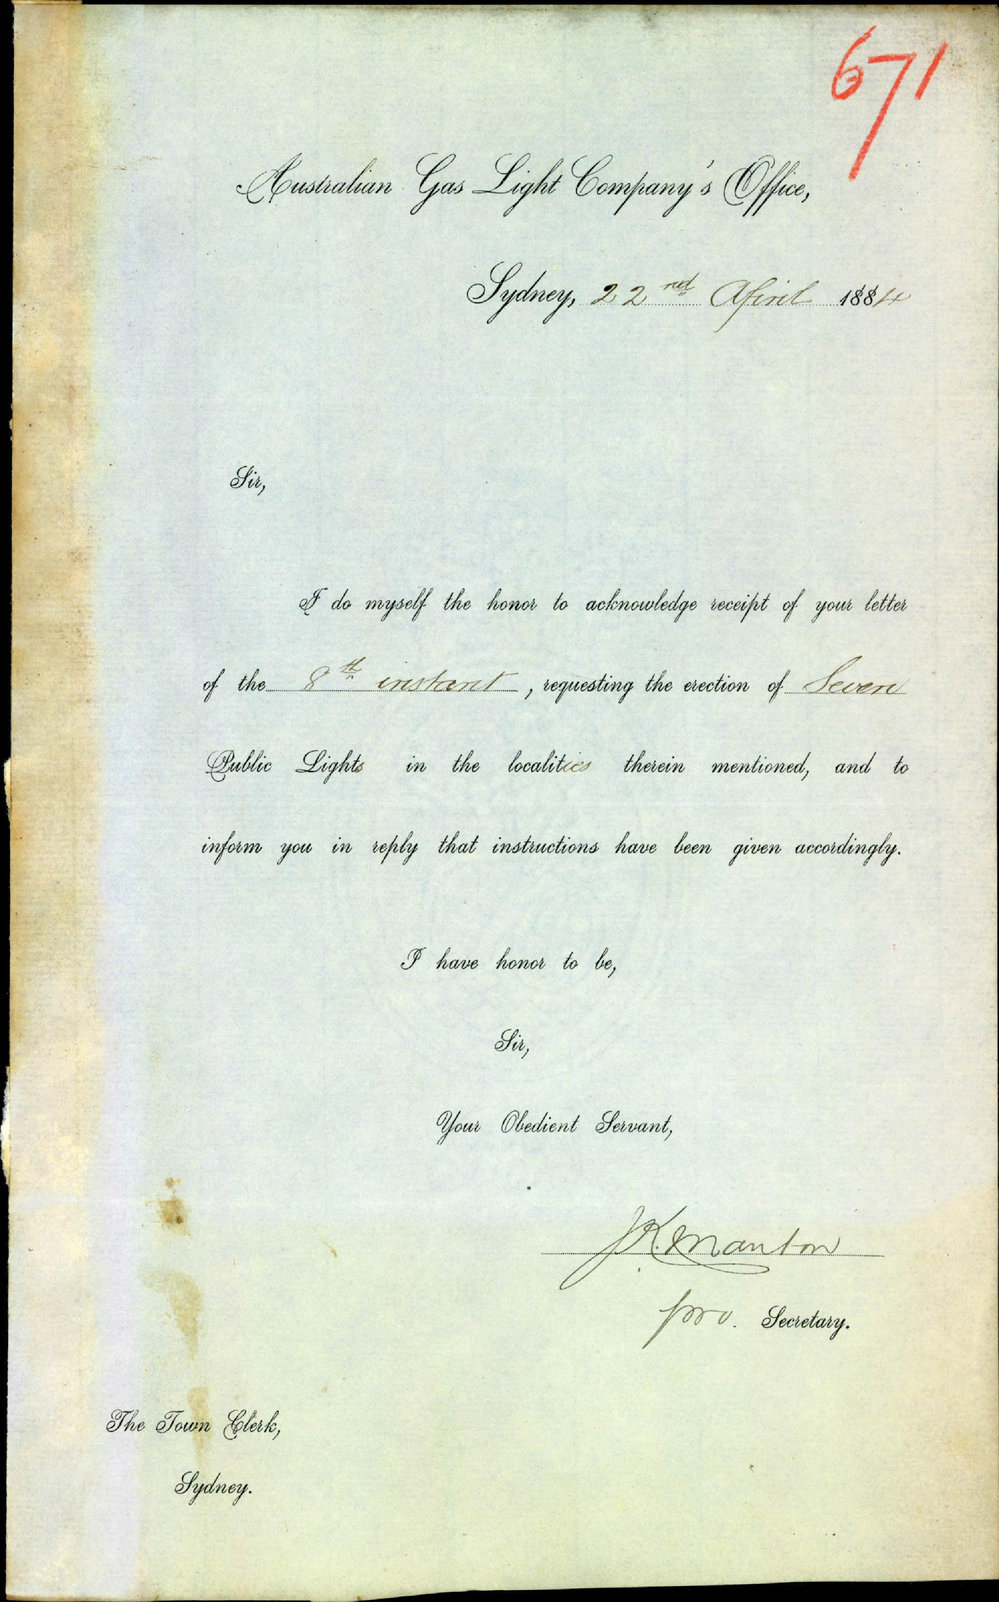 671
Australian Gas Light Company's Office,
Sydney, 22nd April 1884
Sir,
I do myself the honor to acknowledge receipt of your letter
of the 8th instant, requesting the erection of Seven
Public Lights in the localities therein mentioned, and to
inform you in reply that instructions have been given accordingly.
I have honor to be,
Sir,
Your Obedient Servant,
J.K. Manton
pro. Secretary.
The Town Clerk,
Sydney.